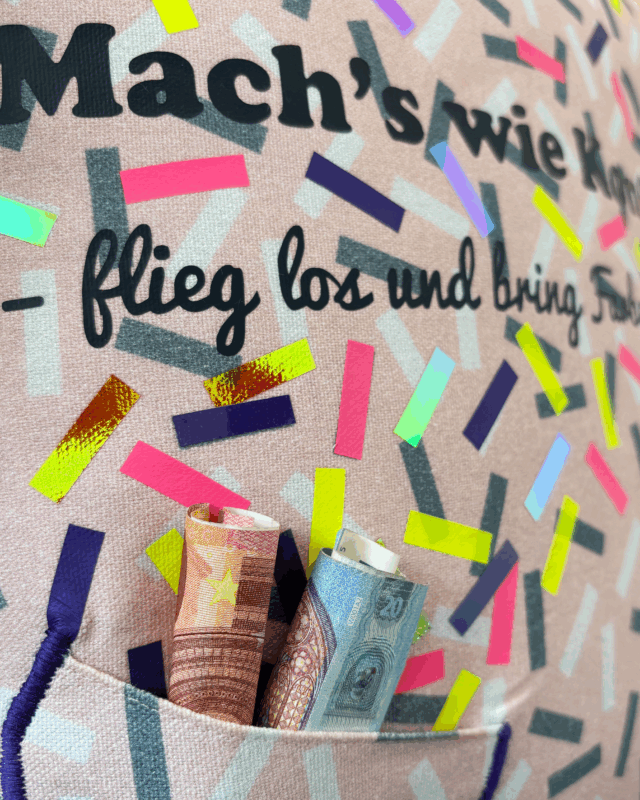 Mach's wie
- flieg los und bring
20